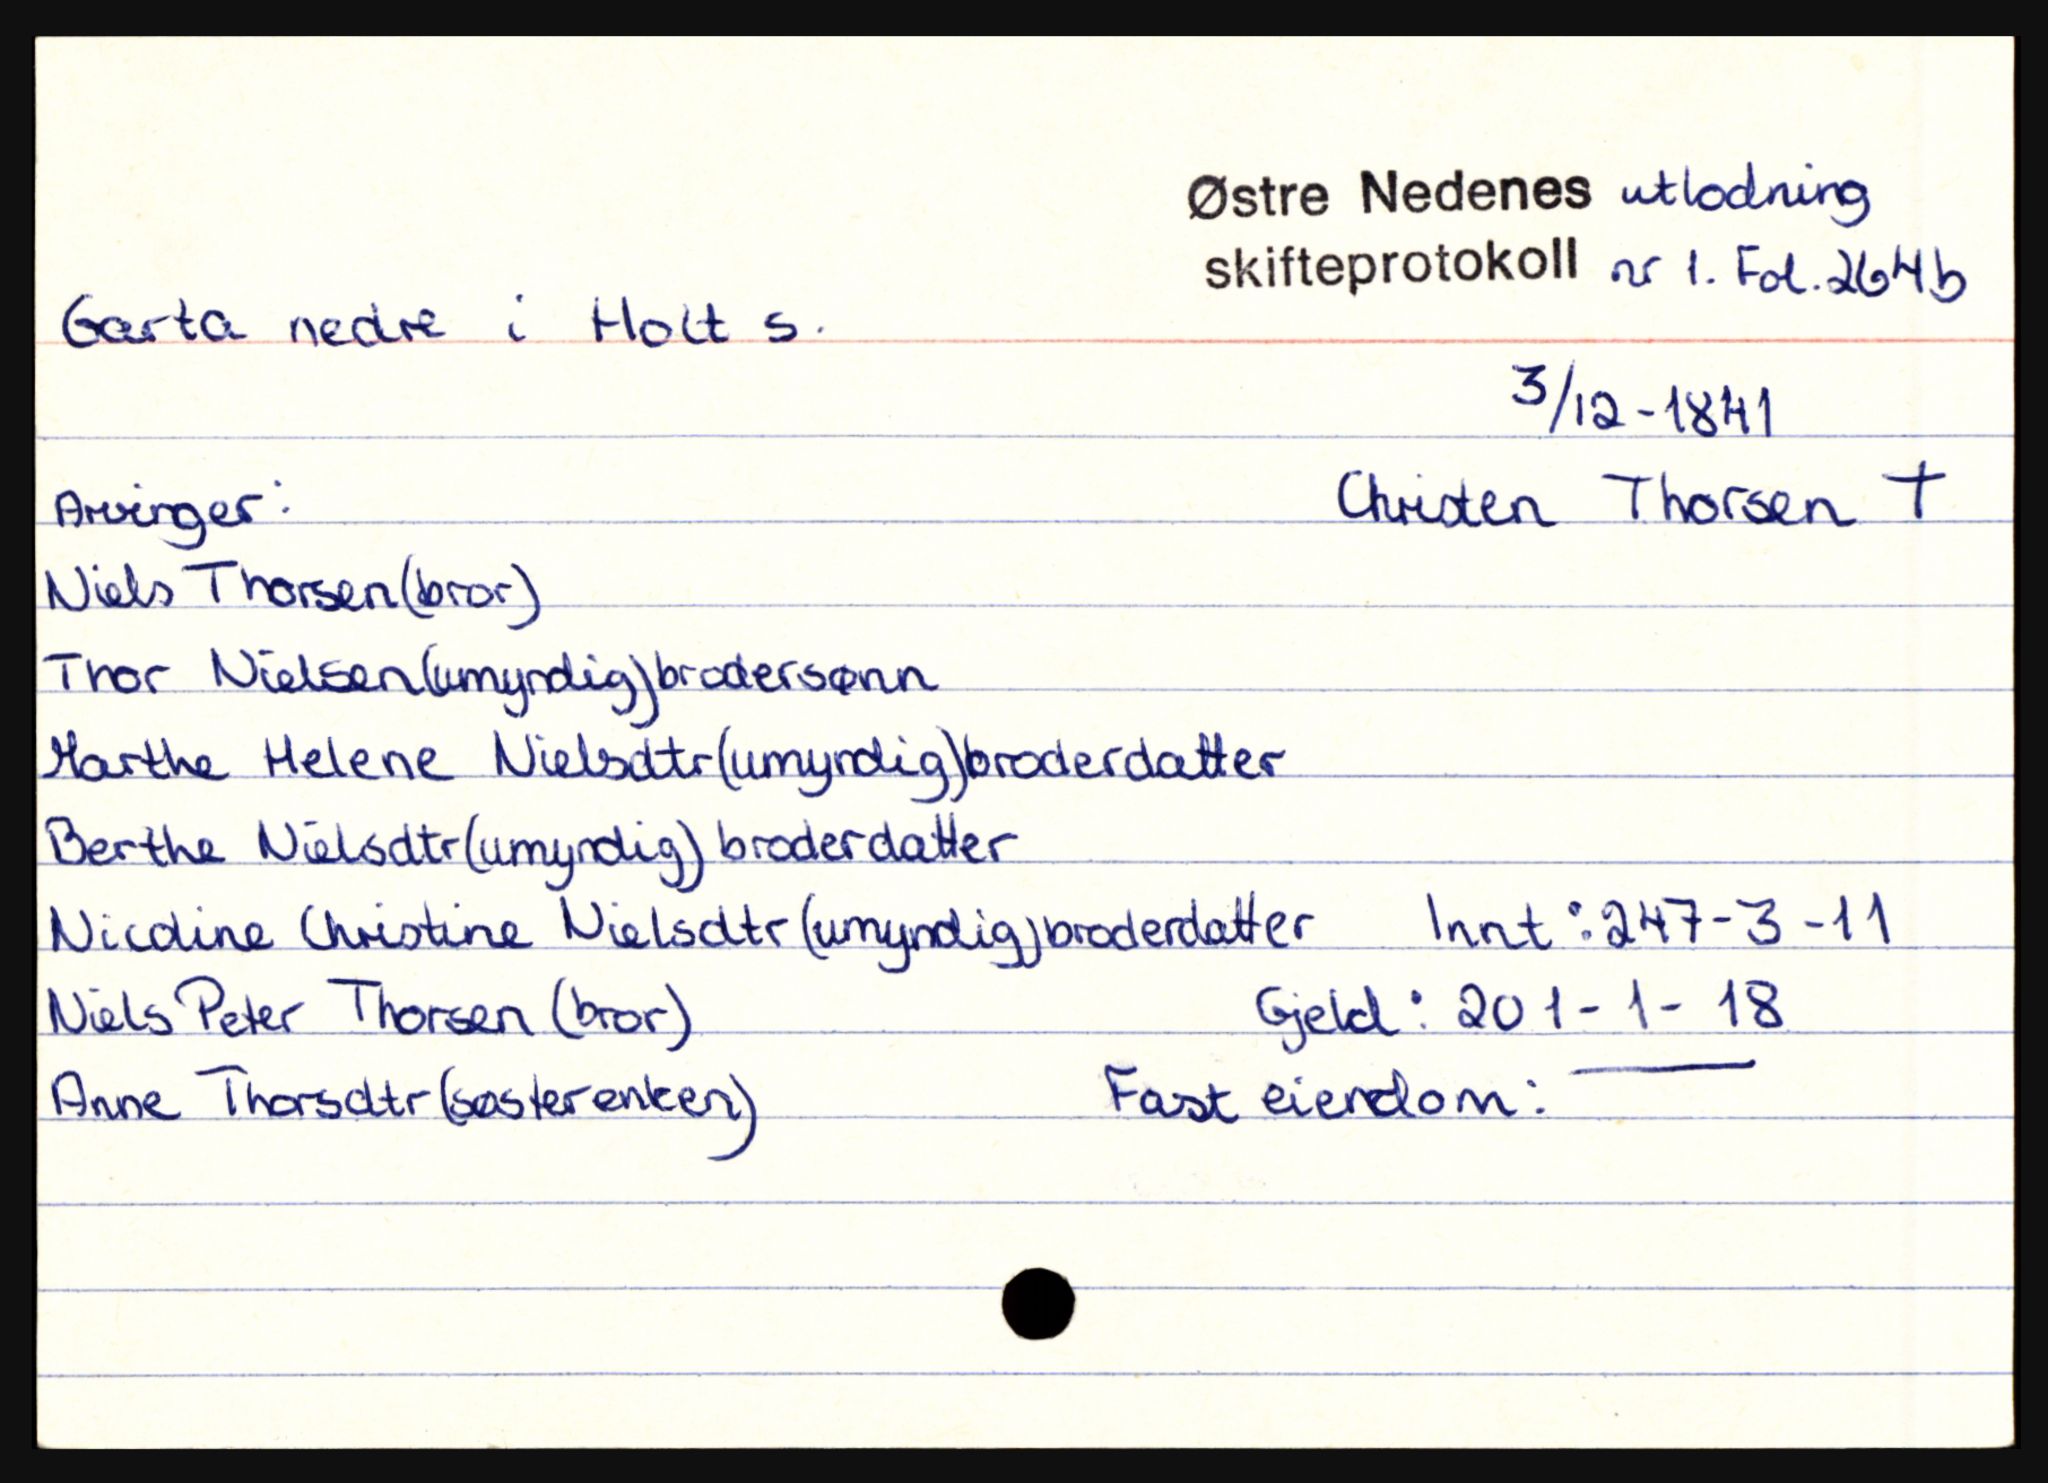 Østre Nedenes utlodning
skifteprotokoll nr 1. Fol. 264b
Garta nedre i Holt s.
3/12-1841
Arvinger:
Christen Thorsen †
Niels Thorsen (bror)
Thor Nielsen (umyndig) brodersønn
Marthe Helene Nielsdtr (umyndig) broderdatter
Berthe Nielsdtr (umyndig) broderdatter
Nicoline Christine Nielsdtr (umyndig) broderdatter Innt: 247-3-11
Niels Peter Thorsen (bror) Gjeld: 201-1-18
Anne Thorsdtr (søster enken) Fast eiendom: —